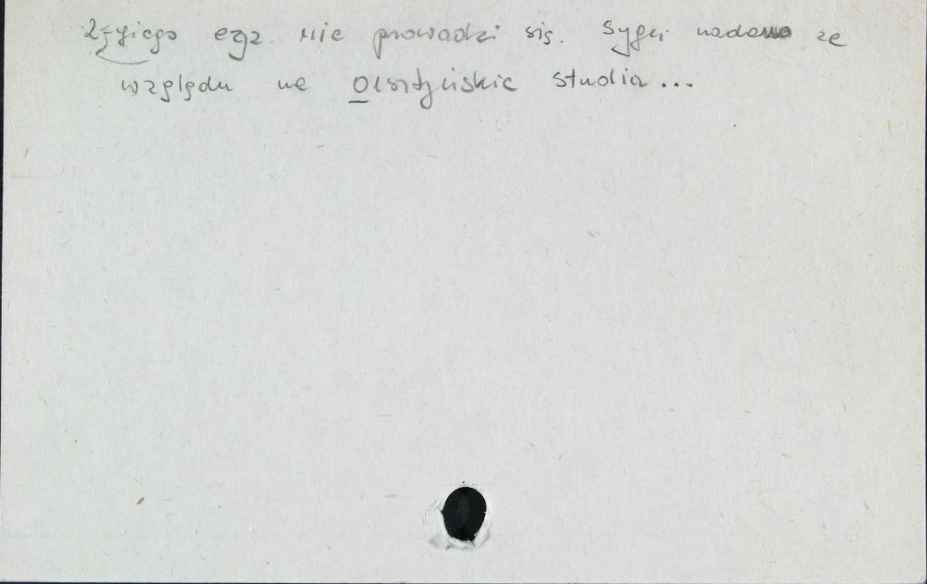 egz. nie prowadzi się. Sygn. nadano ze
względu na Olsztyńskie studia...